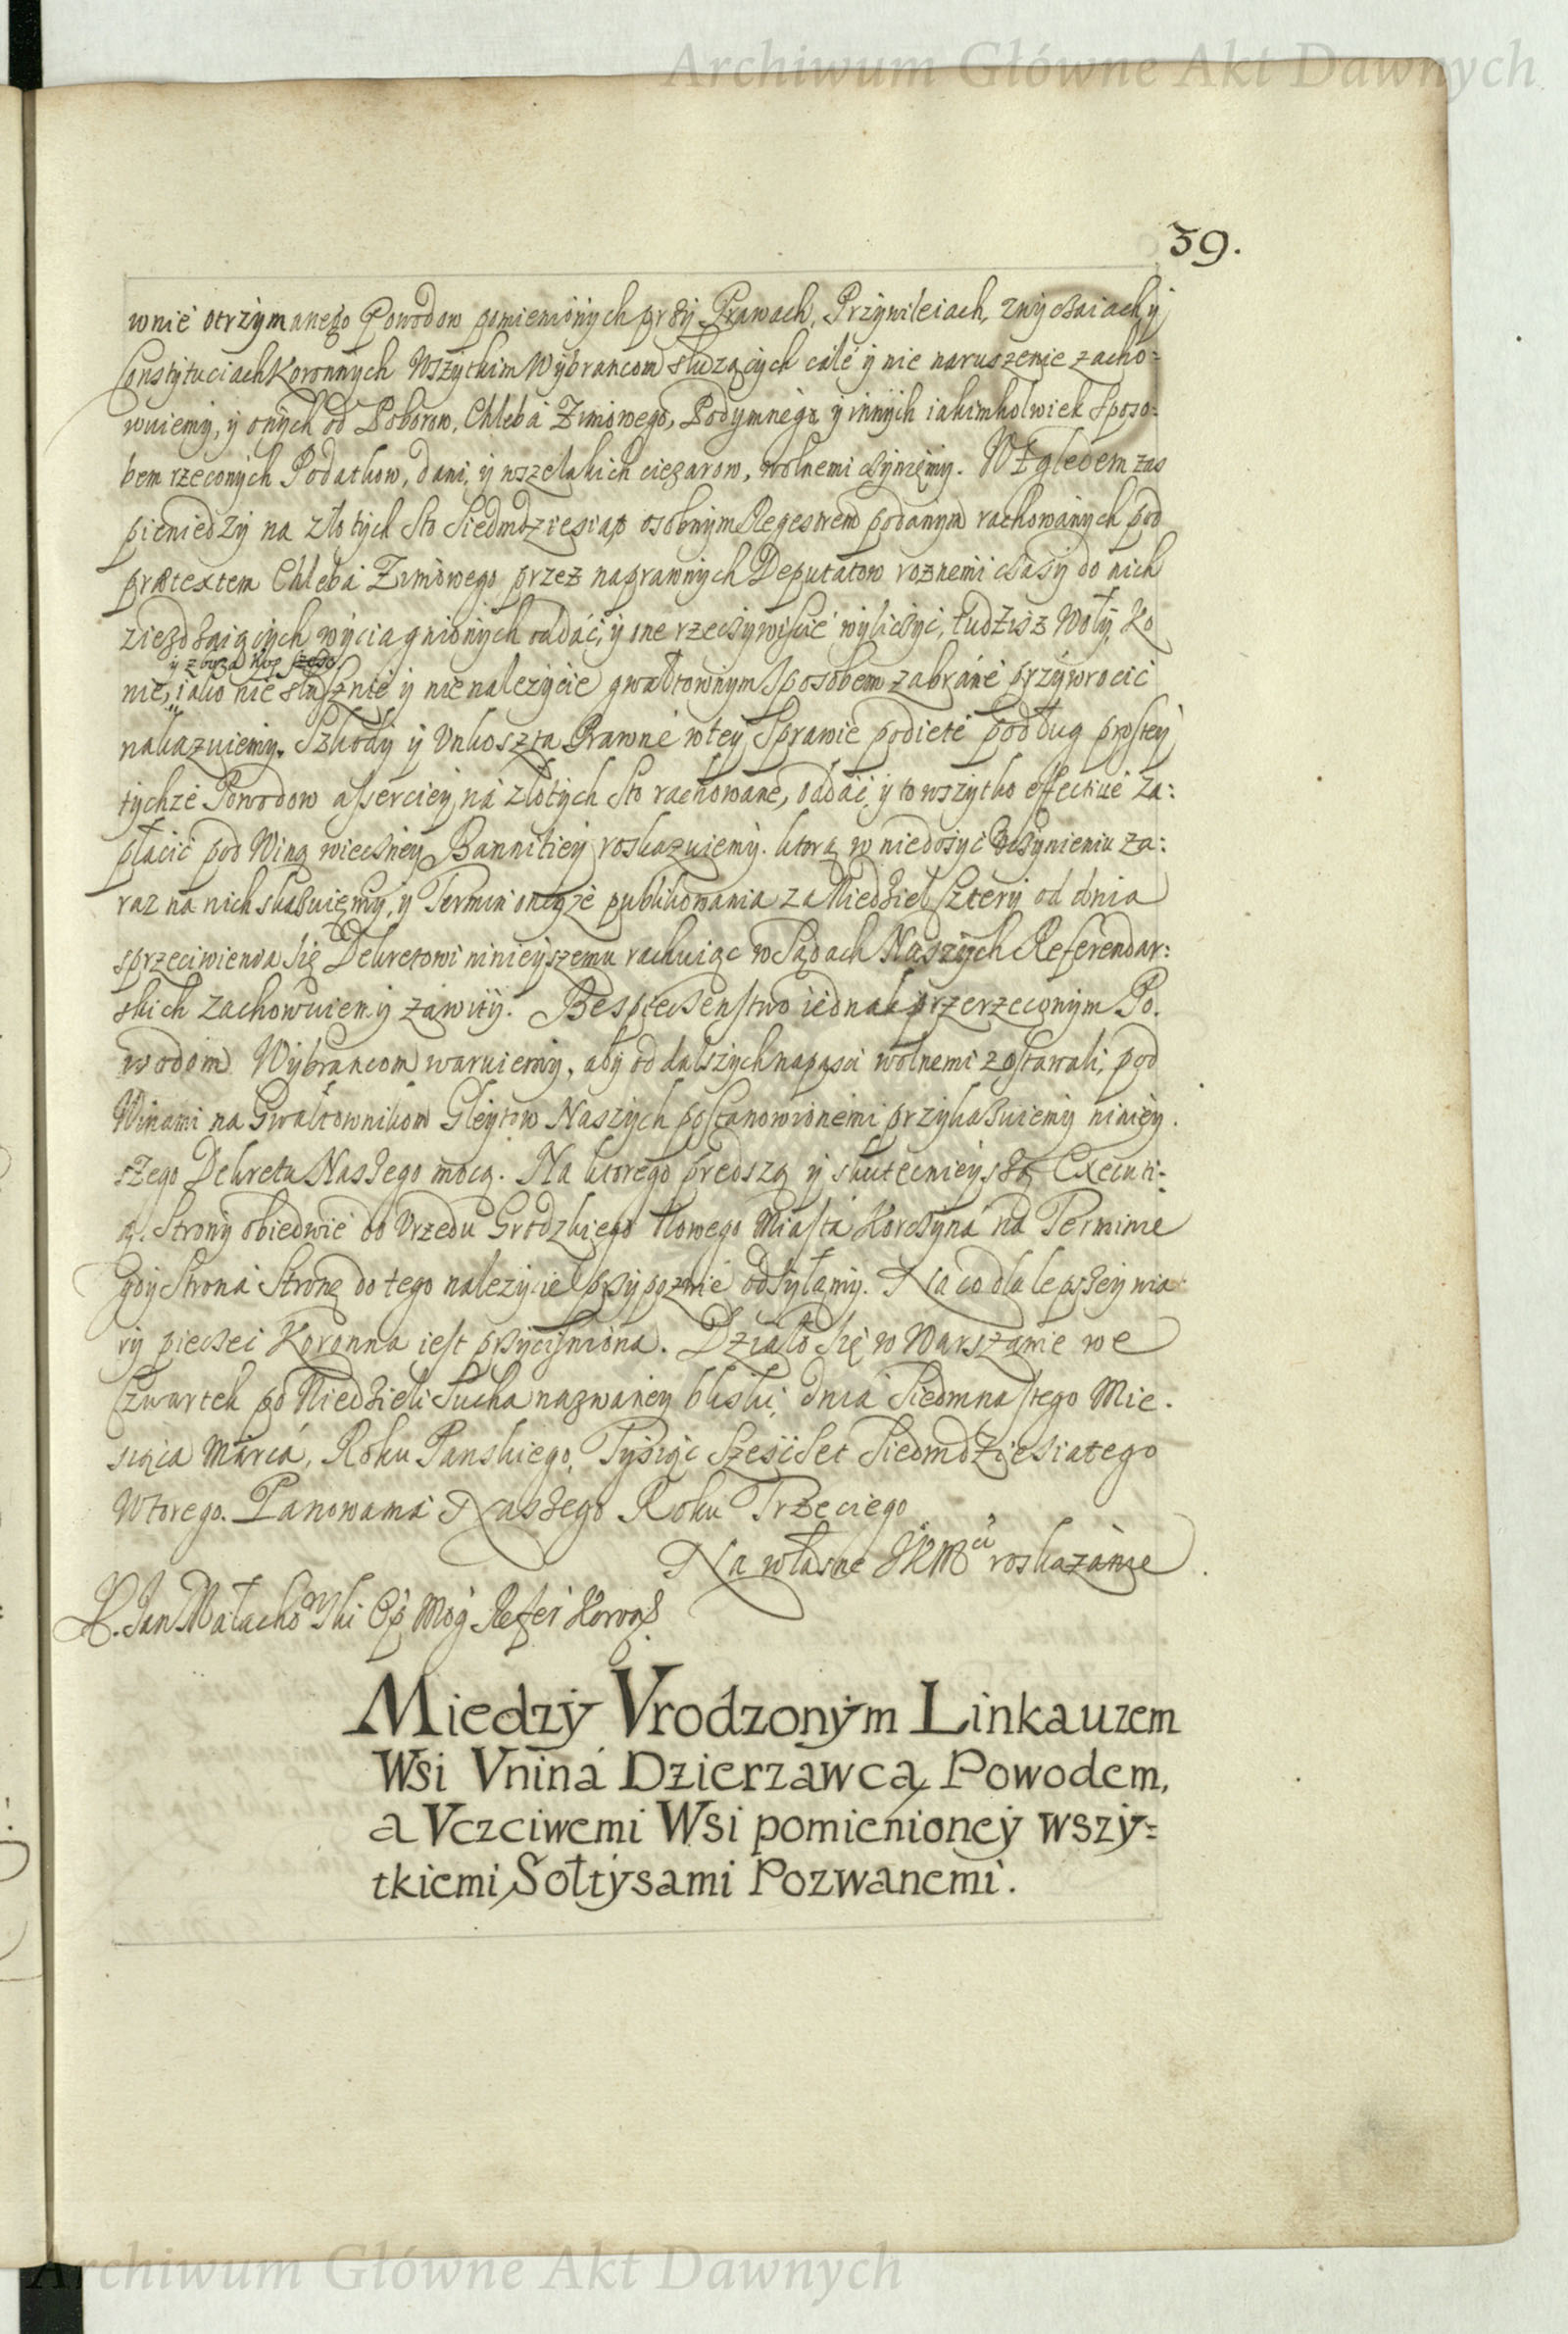 Archiwum Główne Akt Dawnych
39.
wnie otrzymanego Powodow pomienionych przy Prawach, Przywileiach, zwyczaiach y
Constytuciach Koronnych Wszytkim Wybrancom słuzących cále y nie naruszenie zacho=
wuiemy, y onych od Poborow, Chlebá Zimowego, Podymnego y innych iakimkolwiek Sposo=
bem rzeconych Podatkow, dani, y wszelakich ciezarow, wolnemi czyniemy. Względem zas
pieniedzy na złotych Sto Siedmdziesiąt osobnym Regestrem podanym rachowanych pod
prætextem Chlebá Zimowego przez naprawnych Deputatow roznemi czasy do nich
ziezdzaiących wyciagnionych oddać, y one rzeczywiscie wyliczyć, tudzisz Woły, Ko
y zboza kop
nie, iako nie słusznie y nienalezycie gwałtownym Sposobem zabráné przywrocić
nakazuiemy. Szkody y Vnkoszta Prawne w tey Sprawie podiete podług prostey
tychże Powodow assertiey ná złotych Sto rachowane, oddać, y to wszytko effective za:
płacić pod Winą wieczney Bannitiey roskazuiemy. ktorą w niedosyć uczynieniu za:
raz na nich skazuięmy, y Termin oneyże publikowania za Niedziel Cztery od dnia
sprzeciwienia się Dekretowi ninieyszemu rachuiąc w Sądach Naszych Referendar:
skich zachowuiemy zawity. Bespieczenstwo iednak przerzeconym Po.
wodom Wybrancom waruiemy, aby od dalszych napasci wolnemi zostawali, pod
Winami na Gwałtownikow Gleytow Naszych postanowionemi przykazuiemy niniey.
szego Dekretu Naszego mocą. Na ktorego prędszą y skutecnieyszą Executi-
ą. Strony obiedwie do Vrzedu Grodzkiego Nowego Miasta Korczyná na Terminie
gdy Strona Stronę do tego nalezycie przypozwie odsyłamy. Na co dla lepszey wia
ry pieczeć Koronna iest przycisniona. Działo się w Warszawie we
Czwartek po Niedzieli Sucha nazwaney bliski dnia Siedmnastego Mie.
siąca Marca, Roku Panskiego, Tysiąc Szescset Siedmdziesiatego
Wtorego. Panowania Naszego Roku Trzeciego
Na własne JKMci roskazanie
X. Jan Małachowski Op Mog Refer Koron
Miedzy Vrodzonym Linkauzem
Wsi Vniná Dzierzawcą Powodem,
a Vczciwemi Wsi pomienioney wszy=
tkiemi Sołtysami Pozwanemi.
Archiwum Główne Akt Dawnych